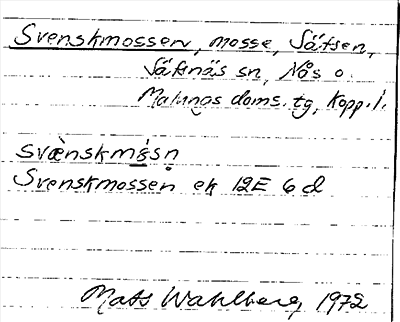 Svenskmossen, mosse, Säfsen,
Säfsnäs sn, Nås o.
Malungs doms. tg, Kopp. l.
svæ̀nskmå̀sn
Svenskmossen ek 12E 6d
Mats Wahlberg 1972